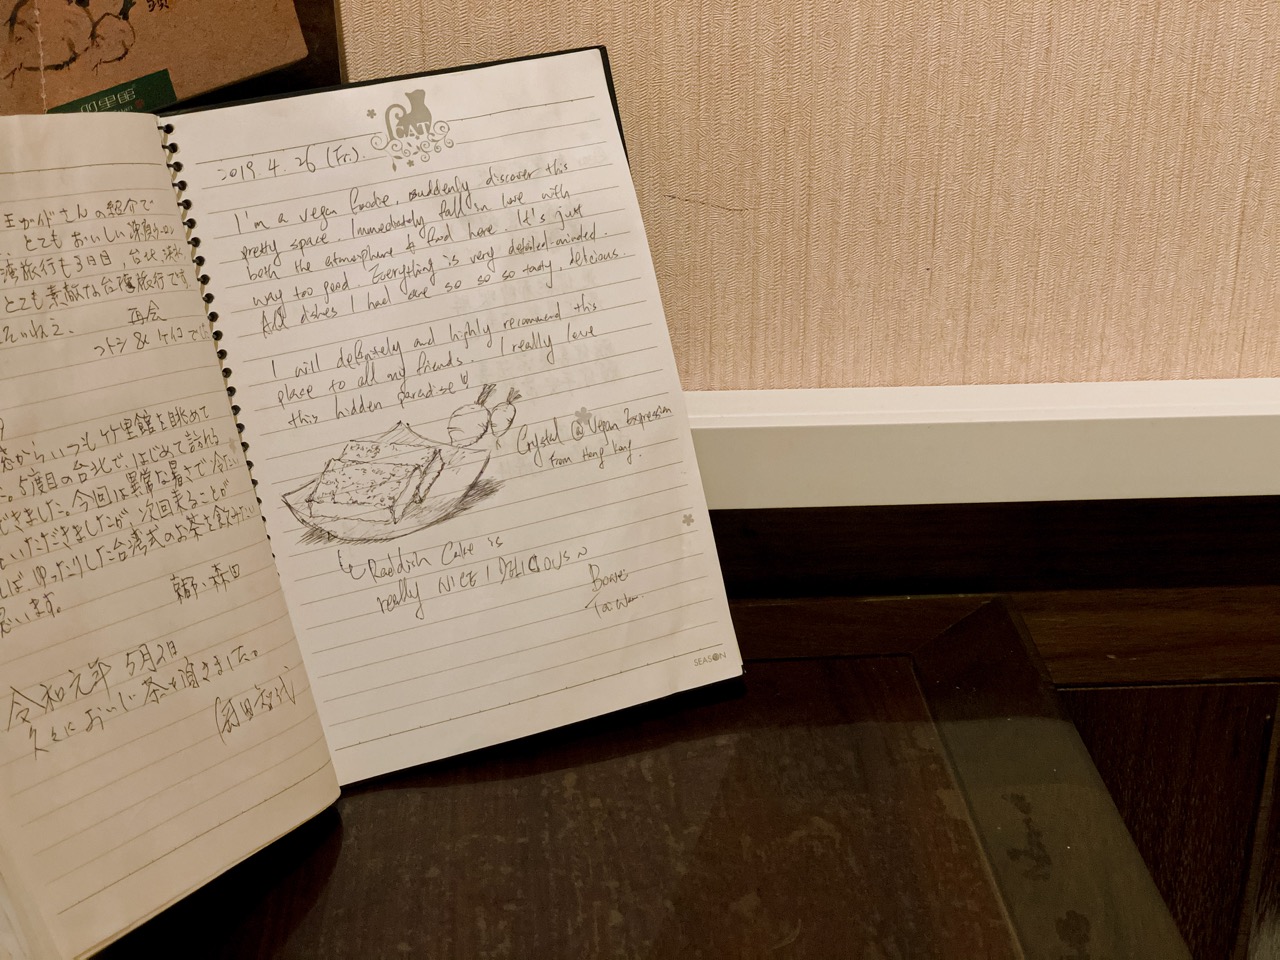 竹里館
王ガイドさんの紹介で
とてもおいしい凍頂ウーロン
湾旅行も3日目、台北、淡水
とても素敵な台湾旅行です
再会
コトシ & ケイコ
窓からいつも竹里館を眺めて
た。5度目の台北で、はじめて訪れる
できました。今回は異常な暑さで冷たい
をいただきましたが、次回来ることが
れば ゆったりした台湾式のお茶を飲みたい
思います。
森田
令和元年 5月2日
久々においしい茶を頂きました。
CAT
2019. 4. 26 (Fri).
I'm a vegan foodie, suddenly discover this
pretty space. Immediately fall in love with
both the atmosphere & food here. It's just
way too good. Everything is very detailed-minded.
All dishes I had are so so so tasty, delicious.
I will definitely and highly recommend this
place to all my friends. I really love
this hidden paradise
Crystal @ Vegan Expression
From Hong Kong.
Raddish Cake is
really NICE! DELICIOUS~
Taiwan.
SEASON